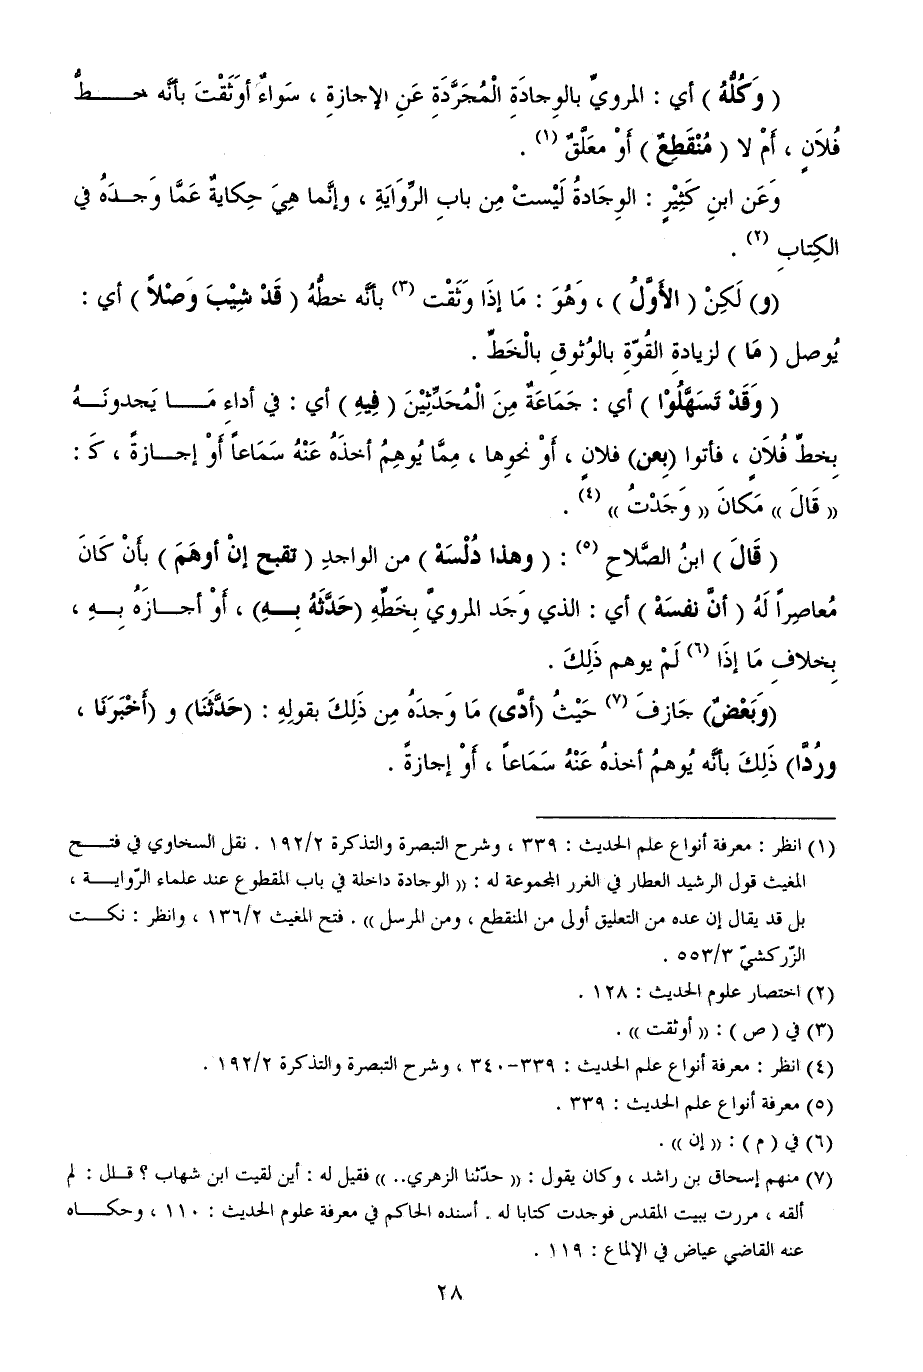 ( وَكُلُّهُ ) أي : المرويِّ بالوِجادَةِ الْمُجَرَّدَةِ عَنِ الإجازةِ ، سَواءٌ أوَثَقْتَ بأنَّه خـــطُّ
فُلاَنٍ ، أَمْ لا ( مُنْقَطِعٌ ) أَوْ معَلَّقٌ (١) .
وَعَن ابنِ كَثِيْرٍ : الوِجَادةُ لَيْستْ مِن بابِ الرِّوَايَةِ ، وإنَّما هِيَ حِكايةٌ عَمَّا وَجــدَهُ في
الكِتابِ (٢) .
(و) لَكِنْ ( الأَوَّلُ ) ، وَهُوَ : مَا إذَا وَثَقْت (٣) بأنَّه خطُّهُ ( قَدْ شِيْبَ وَصْلاً ) أي :
يُوصل ( مَا ) لزيادة القُوّة بالوُثوقِ بالْخَطِّ .
( وَقَدْ تَسَهَّلُوْا ) أي : جَمَاعَةٌ مِنَ الْمُحَدِّثِيْنَ ( فِيهِ ) أي : في أداءِ مَـــا يَجدونَــهُ
بِخطِّ فُلاَنٍ ، فأتوا (بعن) فلانٍ ، أَوْ نحوِها ، مِمَّا يُوهِمُ أخذَهُ عَنْهُ سَمَاعاً أَوْ إجــازةً ، كَـ :
(( قَالَ )) مَكَانَ (( وَجَدْتُ )) (٤) .
( قَالَ ) ابنُ الصَّلاحِ (٥) : ( وهذا دُلْسَةْ ) من الواحِدِ ( تقبح إنْ أوهَمَ ) بأَنْ كَانَ
مُعاصِراً لَهُ ( أنَّ نفسَهْ ) أي : الذي وَجَد المرويَّ بِخَطِّهِ (حَدَّثَهُ بــهِ) ، أَوْ أجــازَهُ بــهِ ،
بخلافِ مَا إذَا (٦) لَمْ يوهم ذَلِكَ .
(وَبَعْضٌ) جَازفَ (٧) حَيْثُ (أدَّى) مَا وَجدَهُ مِن ذَلِكَ بقولِهِ : (حَدَّثَنَا) و (أَخْبَرَنَا ،
ورُدَّا) ذَلِكَ بأنَّه يُوهمُ أخذهُ عَنْهُ سَمَاعاً ، أَوْ إجازةً .
(١) انظر : معرفة أنواع علم الحديث : ٣٣٩ ، وشرح التبصرة والتذكرة ١٩٢/٢ . نقل السخاوي في فتــح
المغيث قول الرشيد العطار في الغرر المجموعة له : (( الوجادة داخلة في باب المقطوع عند علماء الرّوايــة ،
بل قد يقال إن عده من التعليق أولى من المنقطع ، ومن المرسل )) . فتح المغيث ١٣٦/٢ ، وانظر : نكــت
الزّركشيّ ٥٥٣/٣ .
(٢) اختصار علوم الحديث : ١٢٨ .
(٣) في ( ص ) : (( أوثقت )) .
(٤) انظر : معرفة أنواع علم الحديث : ٣٣٩-٣٤٠ ، وشرح التبصرة والتذكرة ١٩٢/٢ .
(٥) معرفة أنواع علم الحديث : ٣٣٩ .
(٦) في ( م ) : (( إن )) .
(٧) منهم إسحاق بن راشد ، وكان يقول : (( حدّثنا الزهري.. )) فقيل له : أين لقيت ابن شهاب ؟ قــال : لم
ألقه ، مررت ببيت المقدس فوجدت كتابا له . أسنده الحاكم في معرفة علوم الحديث : ١١٠ ، وحكــاه
عنه القاضي عياض في الإلماع : ١١٩ .
٢٨